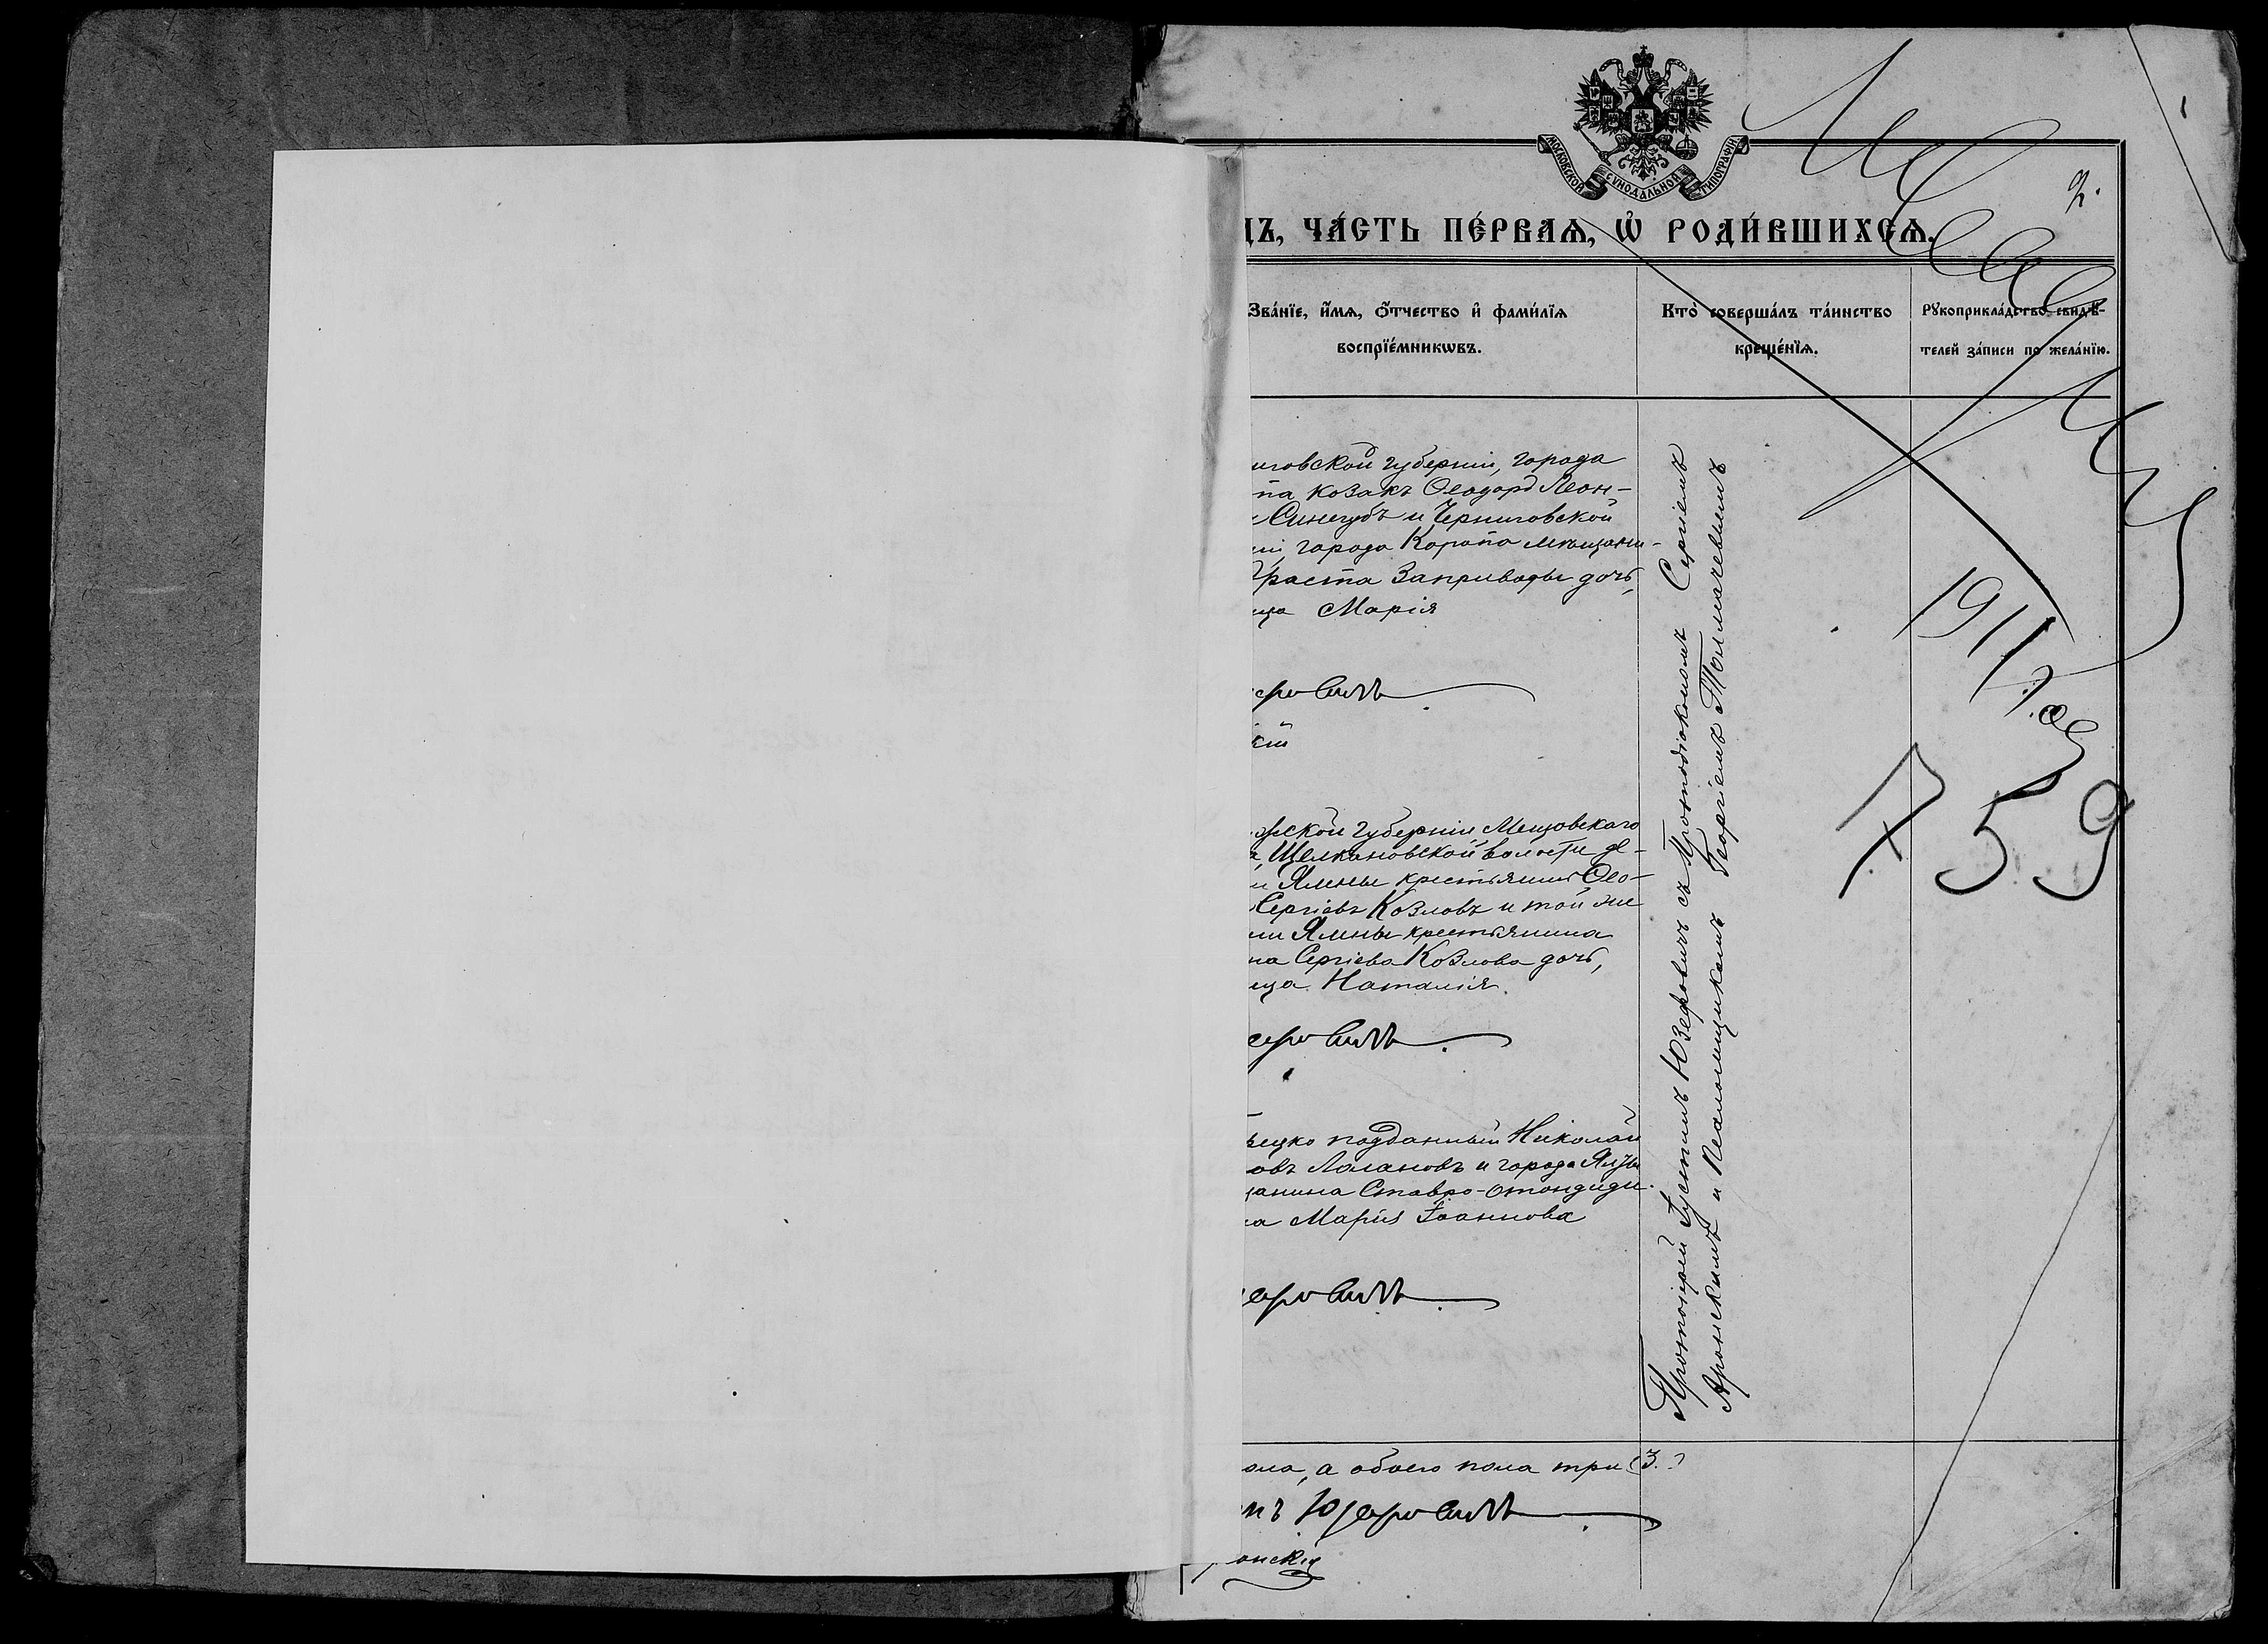 МОСКОВСКОЙ СѴНОДАЛЬНОЙ ТИПОГРАФІИ
2.
ДЪ, ЧА́СТЬ ПЕ́РВАѦ, Ѡ҆ РОДИ́ВШИХСѦ.
Зва́нїе, и҆́мѧ, ѻ҆́тчество и҆ фами́лїѧ
воспрїе́мникѡвъ.
Кто̀ соверша́лъ та́инство
креще́нїѧ.
Рꙋкоприкла́дство свидѣ́-
телей за́писи по жела́нїю.
иговской губерніи, города
па козакъ Ѳеодоръ Леон-
Синегубъ и Черниговской
ніи, города Коропа мѣщани-
раста Заприводы дочь,
ица Марія
ефовичъ
кій
жской губерніи Мещовскаго
Щелкановской волости де-
и Ямны крестьянинъ Ѳео-
Сергіевъ Козловъ и той же
ни Ямны крестьянина
на Сергіева Козлова дочь,
ица Наталія.
ефовичъ
рецко подданный Николай
овъ Лалановъ и города Ялты
щанина Ставро-
на Марія Іоаннова
ефовичъ
Протоіерей Іустинъ Юзефовичъ съ Протодіакономъ Сергіемъ
Аронскимъ и Псаломщикомъ Георгіемъ Толмачевымъ
1911 г.
759
ола, а обоего пола три (3.)
нъ Юзефовичъ
онскій